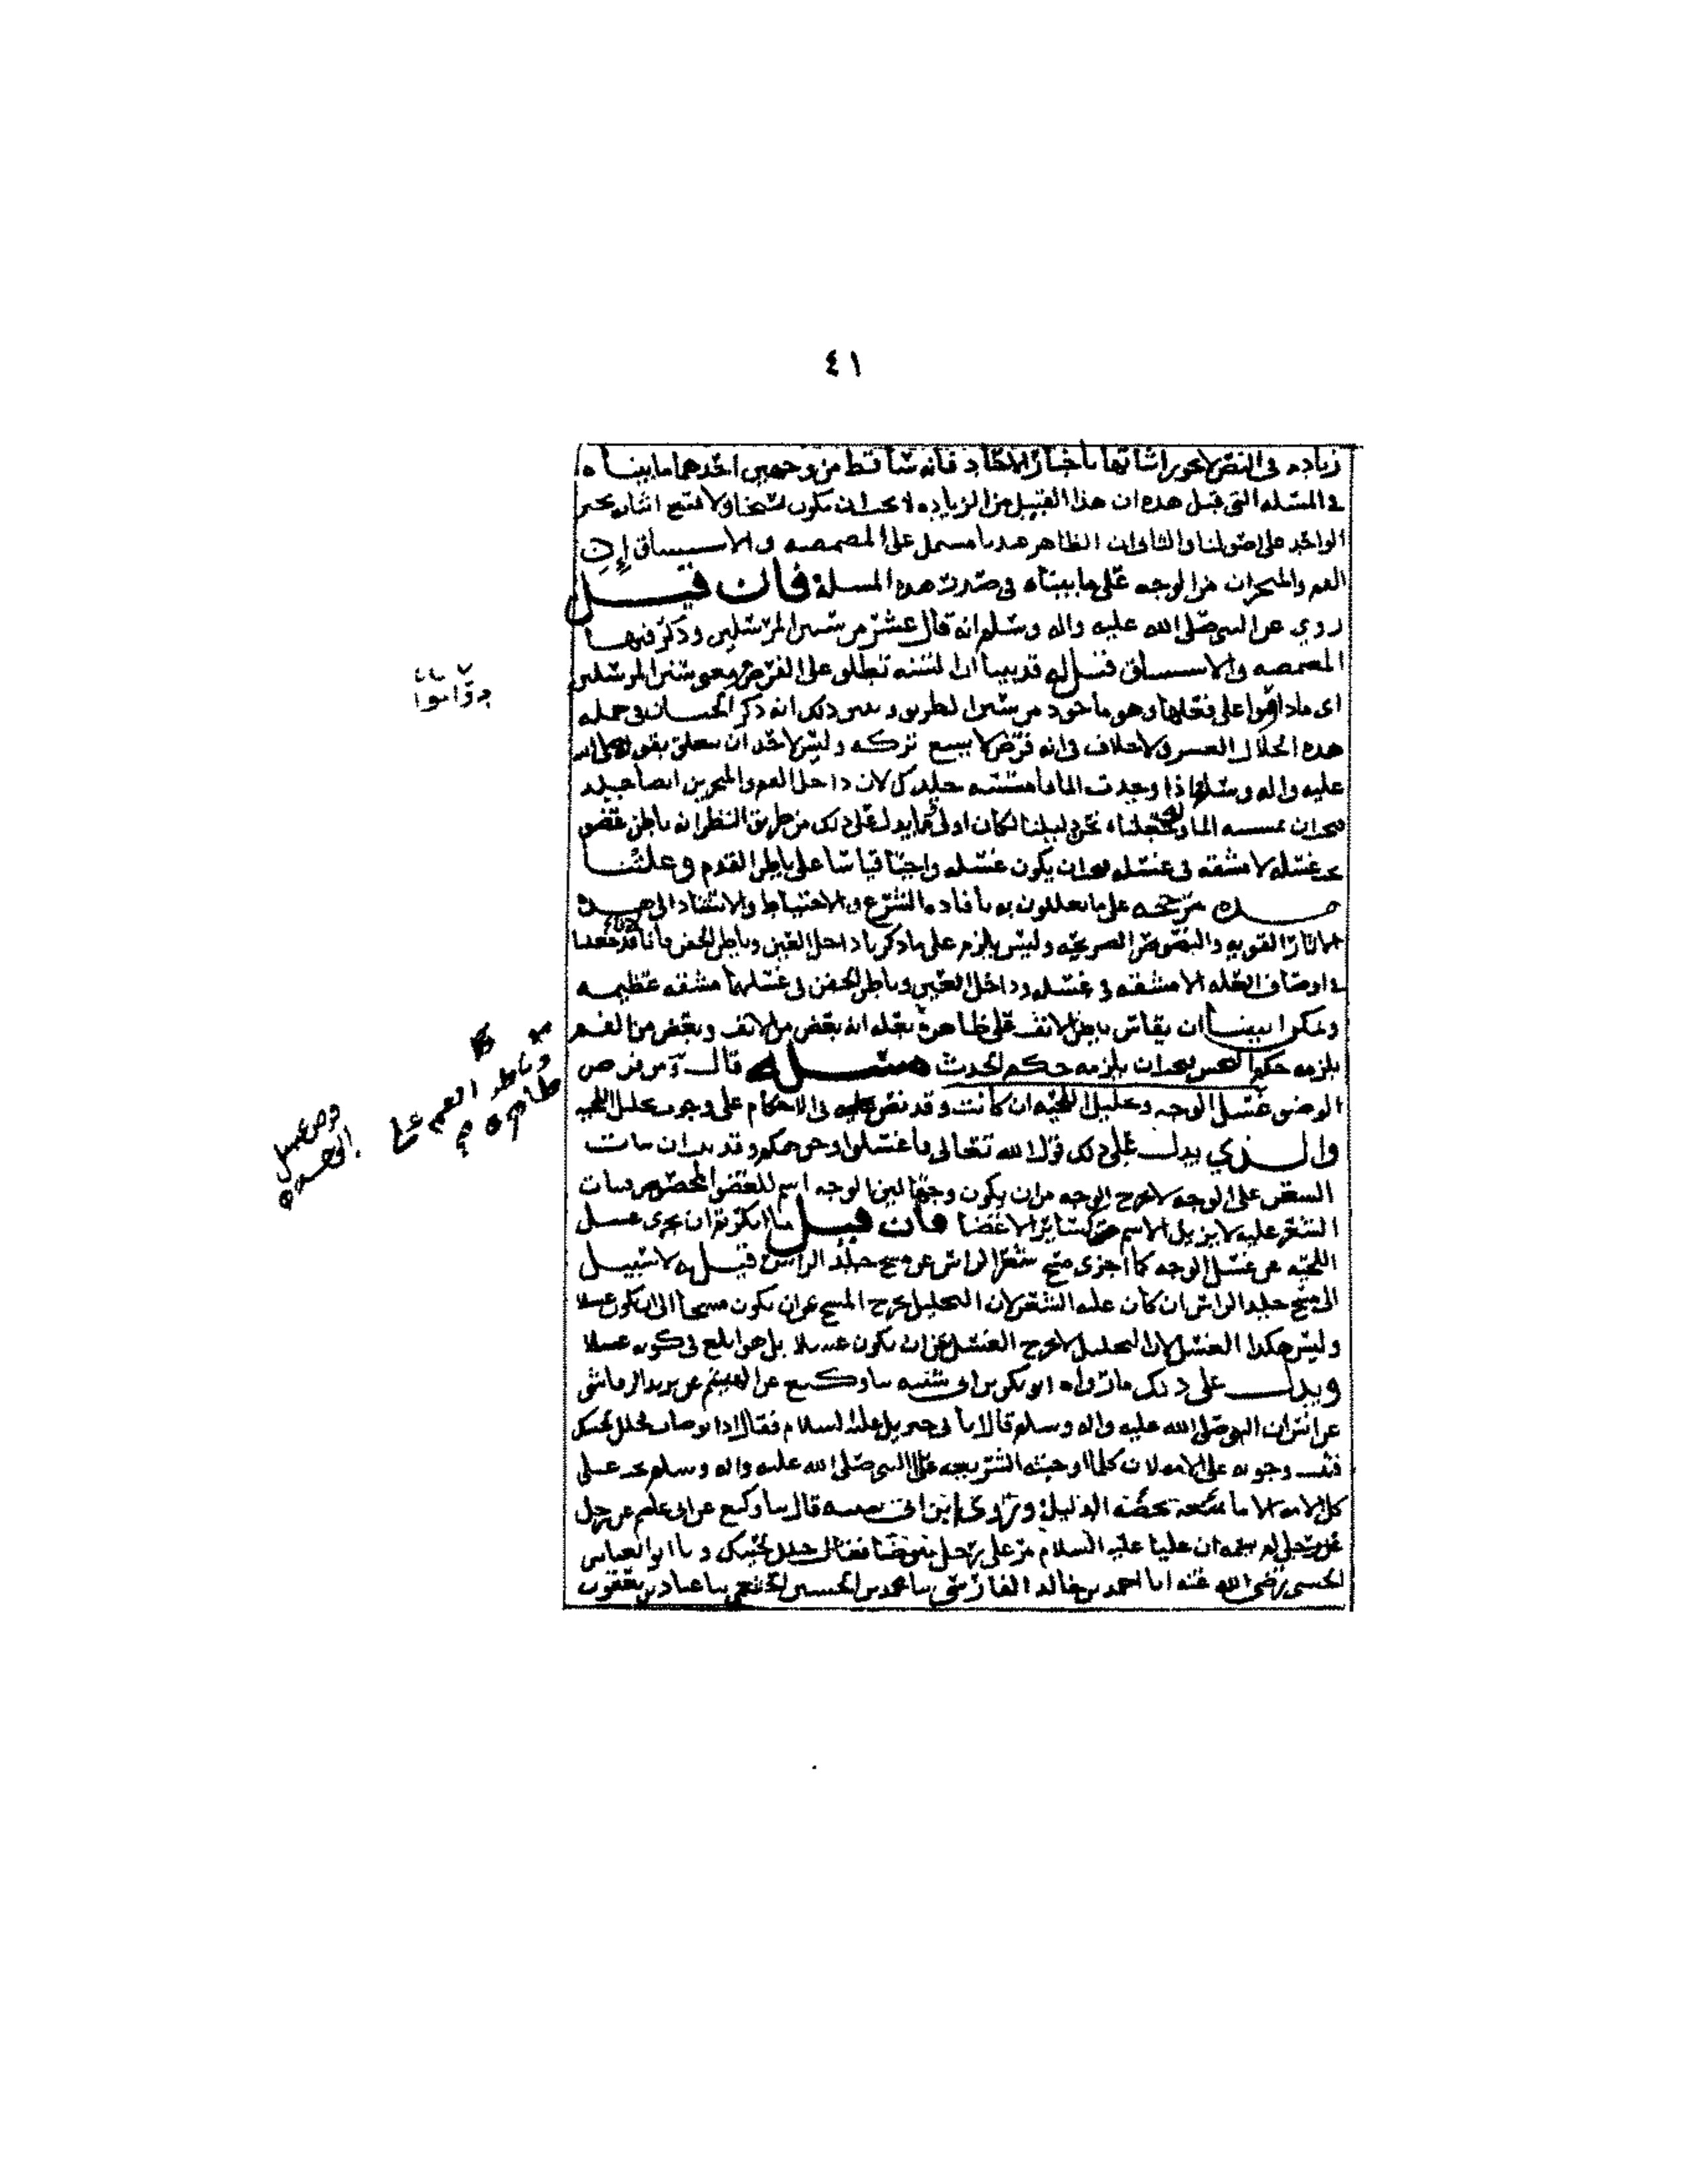 ٤١
زيادة في النص لا يجوز اثباتها باخبار الآحاد فانه ساقط من وجهين احدهما ما بيناه
في المسئله التي قبل هذه ان هذا القبيل من الزياده لا يجب ان يكون نسخا ولا يمتنع اثباته بخبر
الواحد على اصولنا والثاني ان الظاهر عندنا مشتمل على المضمضه والاستنشاق إذ
الفم والمنخران من الوجه على ما بيناه في صدر هذه المسلة فان قيل
روي عن النبي صلى الله عليه واله وسلم انه قال عشر من سنن المرسلين وذكر فيها
المضمضه والاستنشاق قيل له قد بينا ان السنه تطلق على الفرض ومعنى سنن المرسلين
اي ما داموا على فعلها وهو ماخوذ من سنن الطريق ويبين ذلك انه ذكر الختان في جمله
هذه الخلال العشر ولا خلاف في انه فرض لا يسع تركه وليس لاحد ان يتعلق بقوله صلى الله
عليه واله وسلم اذا وجدت الما فامسسه جلدك لان داخل الفم والمنخرين ايضا جلد
فيجب ان يمسسه الما ولو جعلناه نحن دليلنا لكان اولى ومما يدل على ذلك من طريق النظر انه باطن عضو
يجب غسله لا مشقه في غسله فيجب ان يكون غسله واجبا قياسا على باطن القدم وعلتنا
هذه مرجحه على ما يعللون به بافاده الشرع والاحتياط والاستناد الى هذه
الاثار القويه والنصوص الصريحه وليس يلزم على ما ذكرنا داخل العين وباطن الجفن فانا قد جعلنا
في اوصاف العله الا مشقه في غسله وداخل العين وباطن الجفن في غسلهما مشقه عظيمه
ويمكن ايضا ان يقاس باطن الانف على ظاهره بعله انه بعض من الانف وبعض من الفم
يلزمه حكم النجس فيجب ان يلزمه حكم الحدث مسئله قال ومن فرض
الوضو غسل الوجه وتخليل اللحيه ان كانت وقد نص عليه في الاحكام على وجوب تخليل اللحيه
والذي يدل على ذلك قول الله تعالى فاغسلوا وجوهكم وقد ثبت ان نبات
الشعر على الوجه لا يخرج الوجه من ان يكون وجها لان الوجه اسم للعضو المخصوص ونبات
الشعر عليه لا يزيل الاسم عنه كسائر الاعضا فان قيل ما انكرتم ان يجزي غسل
اللحيه عن غسل الوجه كما اجزى مسح شعر الراس عن مسح جلد الراس قيل له لا سبيل
الى مسح جلد الراس ان كان عليه الشعر لان التخليل يخرج المسح عن ان يكون مسحا الى ان يكون غسلا
وليس هكذا الغسل لان التخليل لا يخرج الغسل عن ان يكون غسلا بل هو ابلغ في كونه غسلا
ويدل على ذلك ما رواه ابو بكر بن ابي شيبه نا وكيع عن الهيثم عن يزيد الرقاشي
عن انس ان النبي صلى الله عليه واله وسلم قال اتاني جبريل عليه السلام فقال اذا توضات فخلل لحيتك
فثبت وجوبه على الامه لان كلما اوجبته الشريعه على النبي صلى الله عليه واله وسلم يجب على
كل الامه الا ما خصه الدليل وروى ابن ابي شيبه قال نا وكيع عن ابي عاصم عن رجل
لم يسمه ان عليا عليه السلام مر على رجل يتوضا فقال خلل لحيتك ونا ابو العباس
الحسني رضي الله عنه انا احمد بن خالد الفارسي نا محمد بن الحسين الخثعمي نا عباد بن يعقوب
داموا
وباطن الفم على
ظاهره
فرض غسل
الوجه